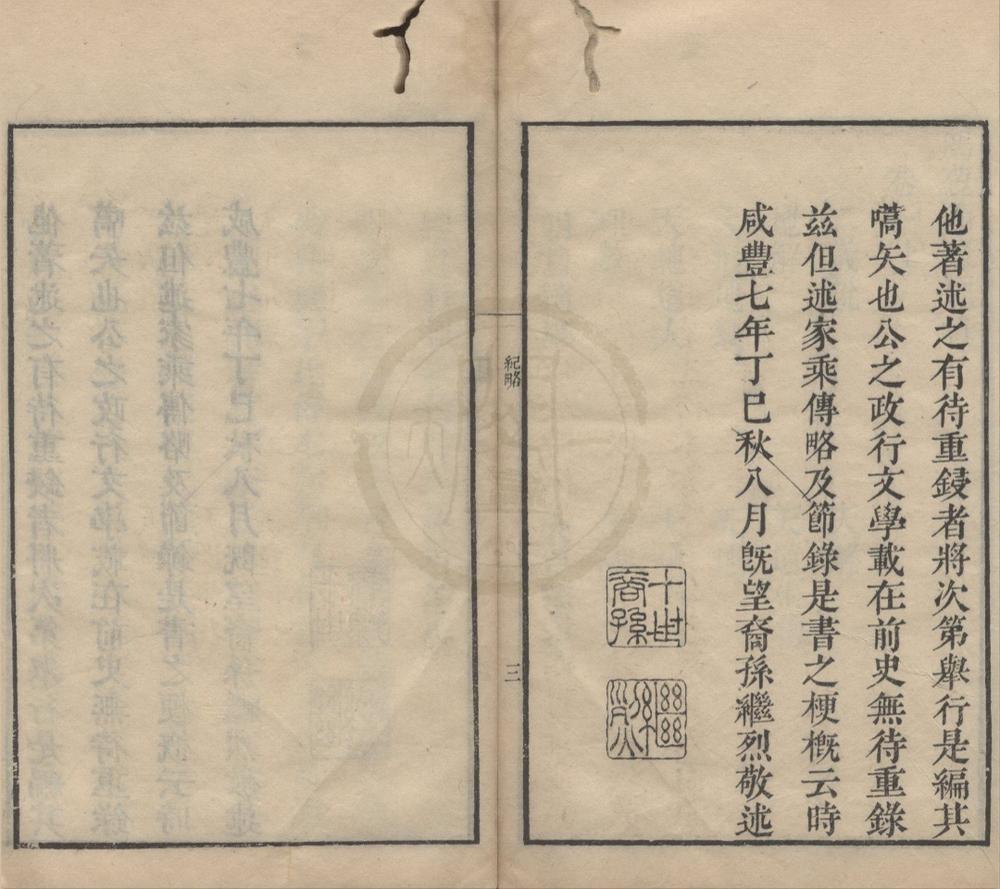 他著述之有待重鋟者將次第舉行是編其
嚆矢也公之政行文學載在前史無待重錄
兹但述家乘傳略及節錄是書之梗槪云時
咸豐七年丁巳秋八月旣望裔孫繼烈敬述
十世
裔孫
繼
烈
紀略
三